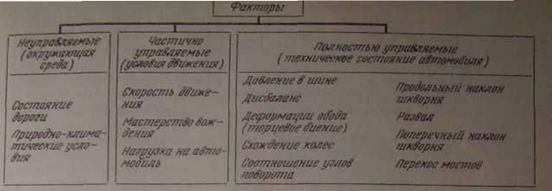 Факторы
Неуправляемые
(окружающая
среда)
Состояние
дороги
Природно-клима-
тические усло-
вия
Частично
управляемые
(условия движения)
Скорость движе-
ния
Мастерство вож-
дения
Нагрузка на авто-
мобиль
Полностью управляемые
(техническое состояние автомобиля)
Давление в шине
Дисбаланс
Деформации обода
(торцевое биение)
Схождение колес
Соотношение углов
поворота
Продольный наклон
шкворня
Развал
Поперечный наклон
шкворня
Перекос мостов